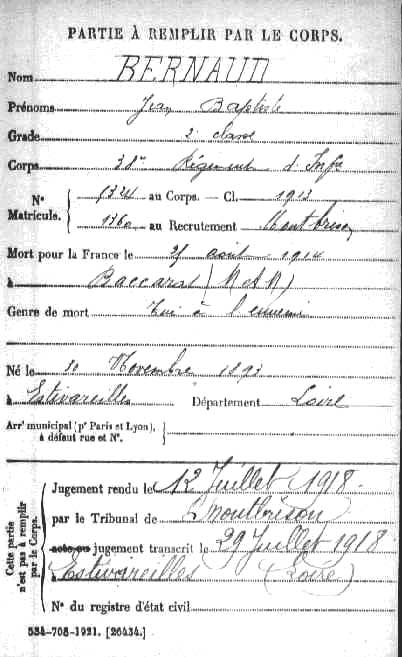 PARTIE À REMPLIR PAR LE CORPS.
Nom BERNAUD
Prénoms Jean Baptiste
Grade 2e classe
Corps 38me Régiment d'Infie
N° Matricule. { 1324 au Corps. — Cl. 1913
1760 au Recrutement Montbrison
Mort pour la France le 25 août 1914
à Baccarat (M & M)
Genre de mort Tué à l'ennemi
Né le 30 Novembre 1893
à Estivareilles Département Loire
Arrt municipal (pr Paris et Lyon), à défaut rue et N°. {
Cette partie n'est pas à remplir par le Corps. {
Jugement rendu le 12 Juillet 1918.
par le Tribunal de Montbrison
acte ou jugement transcrit le 29 Juillet 1918
à Estivareilles (Loire)
N° du registre d'état civil
534-708-1921. [26434.]